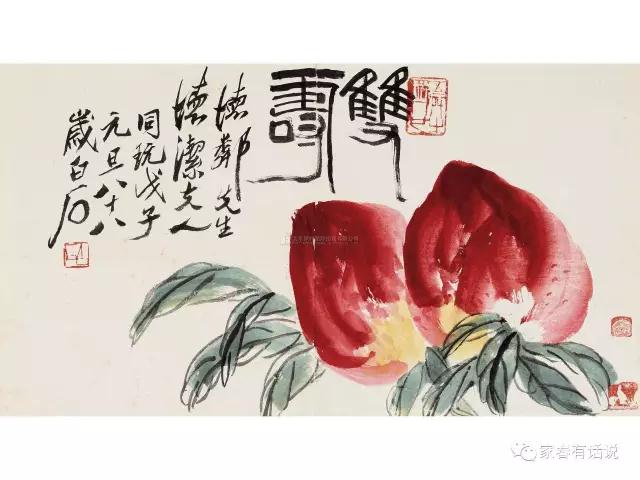 雙壽
德鄰先生
德潔夫人
同玩戊子
元旦八十八
歲白石
家春有话说